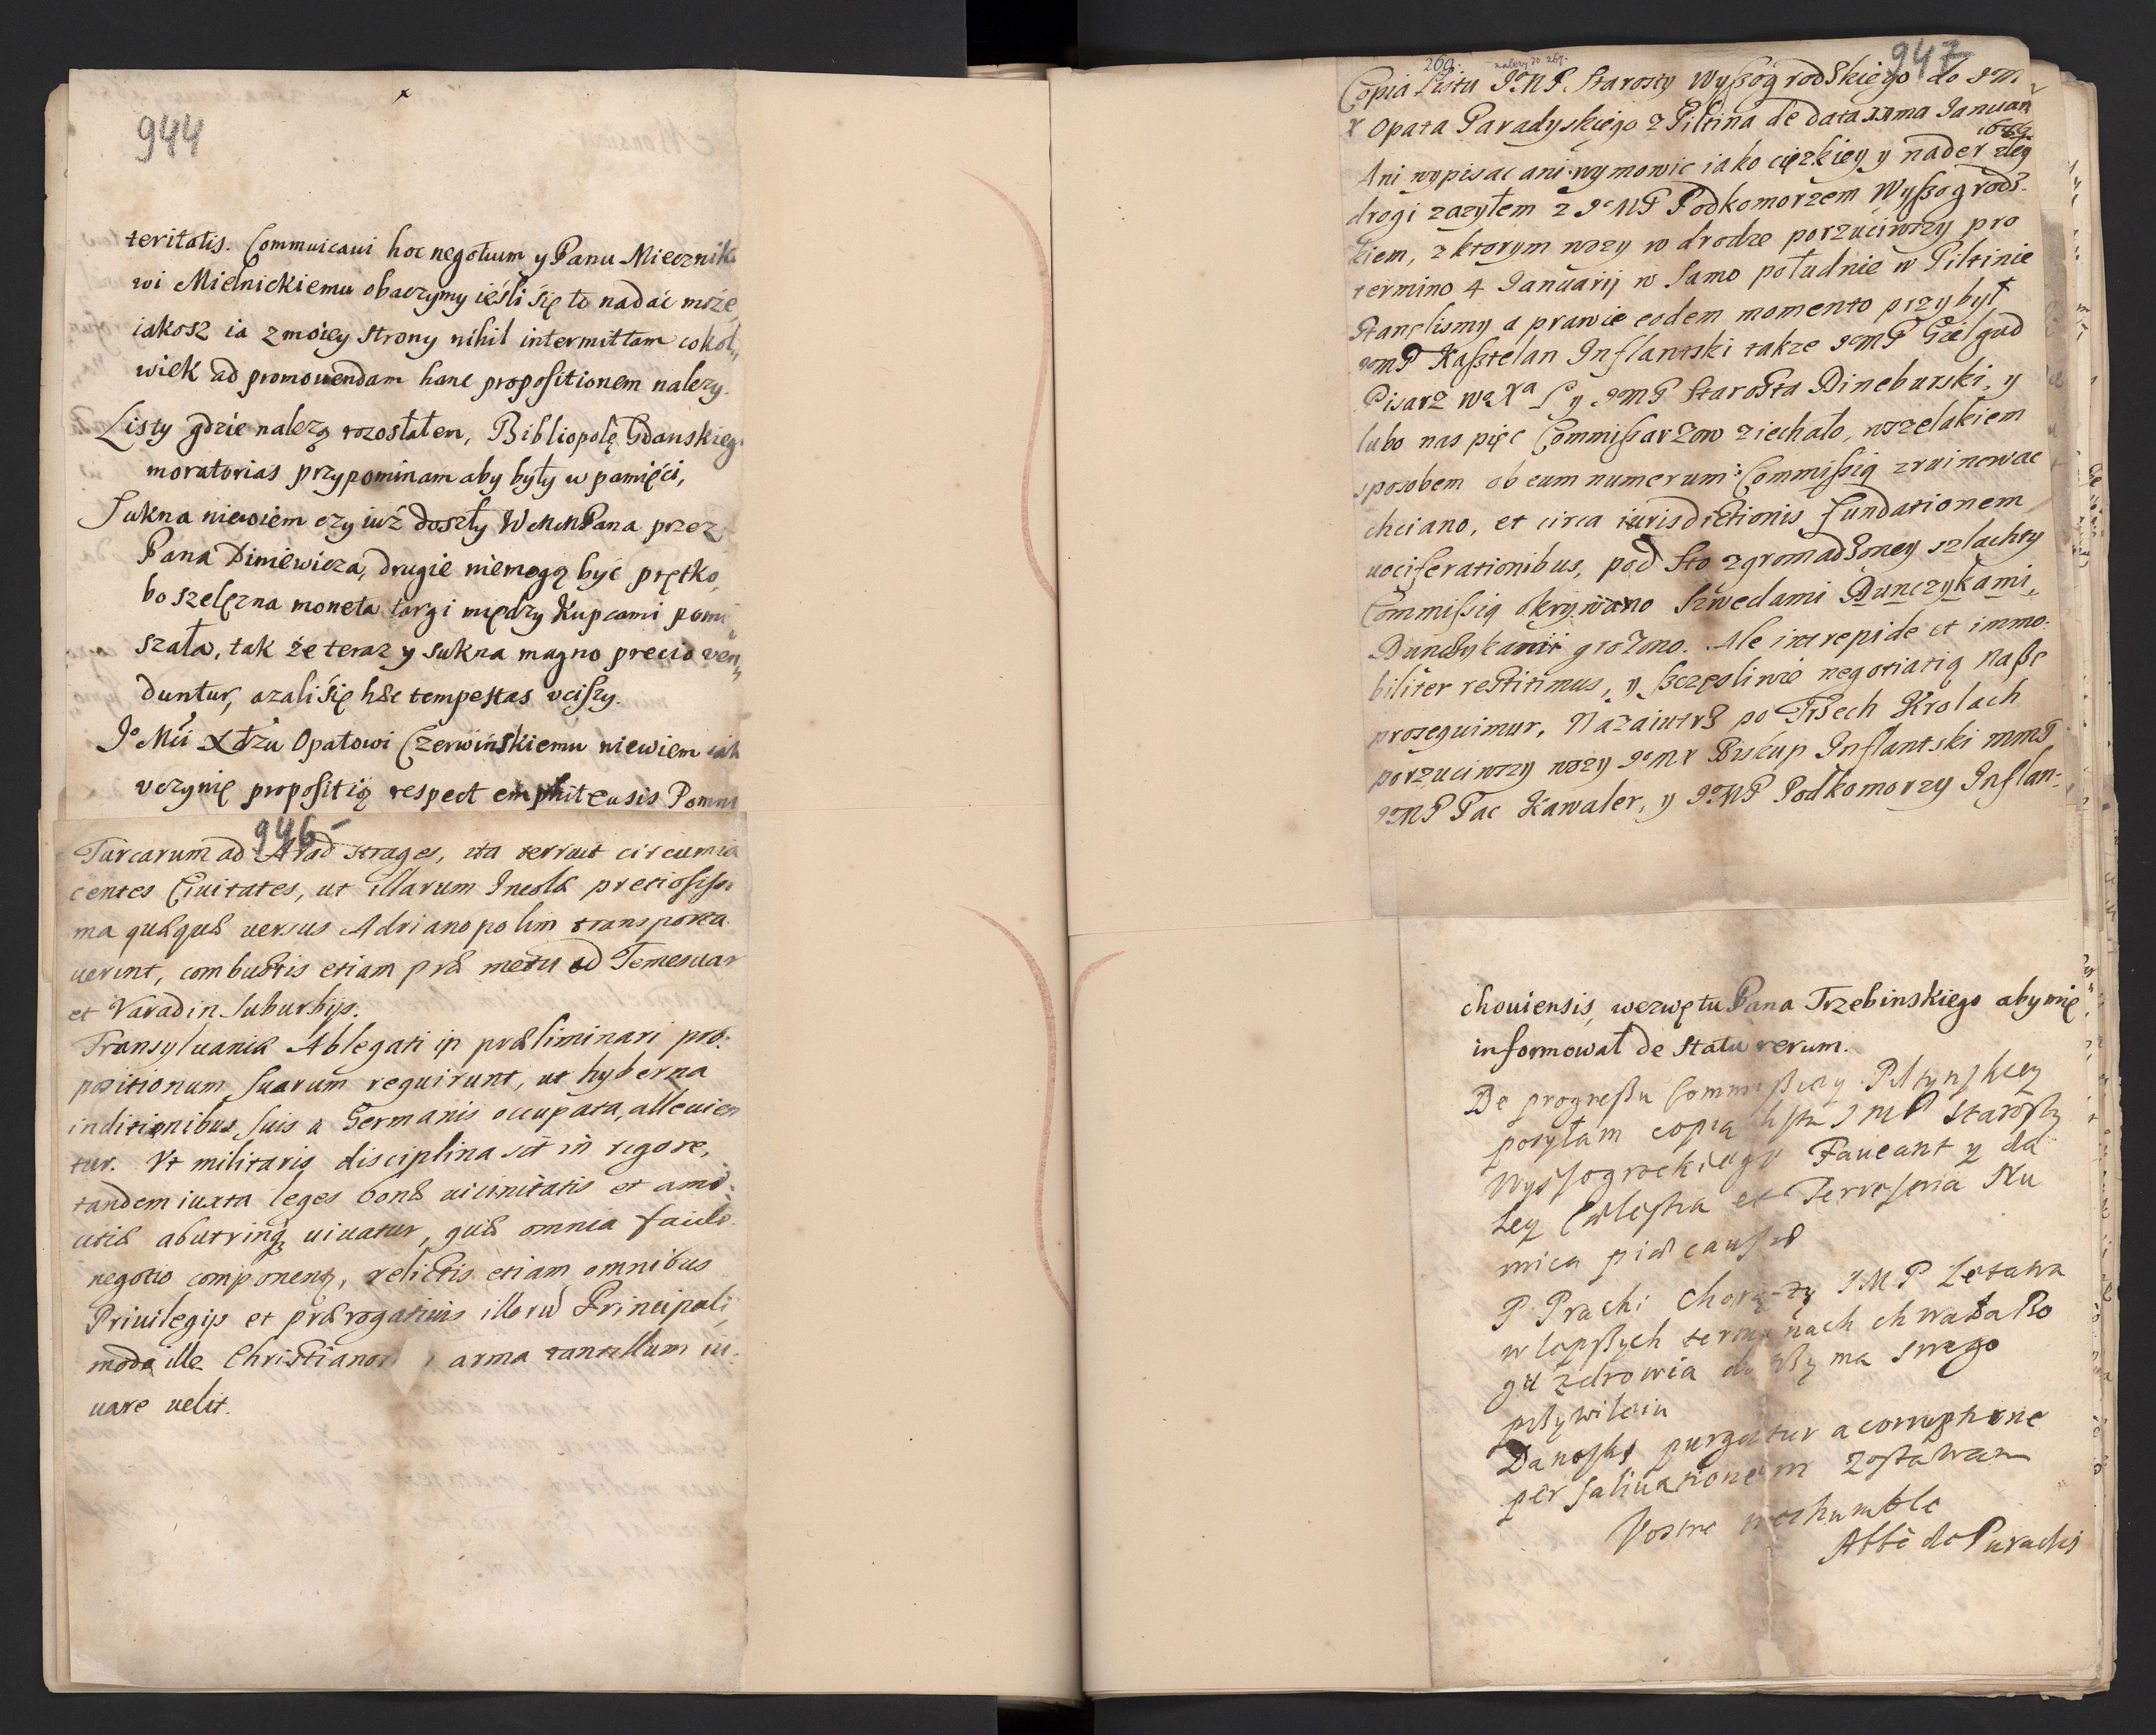 944
teritatis. Commuicaui hoc negotium y Panu Miecznik
wi Mielnickiemu obaczymy ieśli się to nadać może,
iakosz ia z moiey strony nihil intermittam cokol„
wiek ad promouendam hanc propositionem nalezy.
Listy gdzie nalezą rozosłałem, Bibliopolę Gdanskieg
moratorias przypominam aby były w pamięci,
Sukna niewiem czy iuż doszły WMMPana przez
Pana Diniewicza, drugie niemogą być prętko,
bo szelężna moneta targi między Kupcami pomi
szała, tak że teraz y sukna magno precio ven„
duntur, azali się hæc tempestas vciszy.
Jo Mci Xdzu Opatowi Czerwińskiemu niewiem iak
vczynię propositią respect emphiteusis Pomni
946
Turcarum ad Arad strages, ita terruit circumia
centes Ciuitates, ut illarum Incolæ preciosissi
ma quæquæ uersus Adrianopolim transporta
uerint, combustis etiam præ metu ad Temesuar
et Varadin Suburbijs.
Transyluaniæ Ablegati in præliminari pro:
positionum suarum requirunt, ut hyberna
in ditionibus suis a Germanis occupata, alleuien
tur. Vt militaris disciplina sit in rigore,
tandem iuxta leges bonæ uicinitatis et ami:
citiæ ab utrinq uiuatur, quæ omnia facile
negotio componenq, relictis etiam omnibus
Priuilegijs et prærogatiuis illorū Principali,
modo ille Christianor arma tantillum iu:
uare uelit.
947
260. nalezy do 259.
Copia Listu JoMP. Starosty Wyszogrodskiego do JM
X Opata Paradyskiego z Piltina de data 11ma Januarii
Ani wypisac ani wymowic iako cięzkiey y nader zley
drogi zazyłem z JoMP Podkomorzem Wyszogrods:
kiem, z ktorym wozy w drodze porzuciwszy pro
termino 4 Januarij w samo południe w Piltinie
stanelismy a prawie eodem momento przybył
JoMP Kasztelan Inflantski takze JoMP Gielgud
Pisarz Wo Xa L y JoMP Starosta Dineburski, y
lubo nas pięc Commissarzow ziechało, wszelakiem
sposobem ob eum numerum Commissią zruinowac
chciano, et circa iurisdictionis fundationem
uociferationibus, pod sto zgromadzoney szlachty
Commissią okrywano Szwedami Dunczykami,
Dunczykami grozono. Ale intrepide et immo:
biliter restitimus, y szczęsliwie negotiatią nasze
prosequimur, Nazaiutrz po Trzech Krolach
porzuciwszy wozy JoMX Biskup Inflantski
JoMP Pac Kawaler, y JoMP Podkomorzy Inflan:
chouiensis, wezwę tu Pana Trzebinskiego aby mię
informował de statu rerum.
De progressu Commissiey Piltynskiey
posyłam copią listu JMP Starosty
Wyszogrockiego Faueant y da
ley Cælestia et Terrestria Nu
mica piæ causæ
P Prachi Chorązy JMP
w lepszych terminach chwała Bo
gu zdrowia swego
przywileiu
purgatur a corruptione
per saliuationem zostawam
Vostre treshumble
Abbé de Paradis